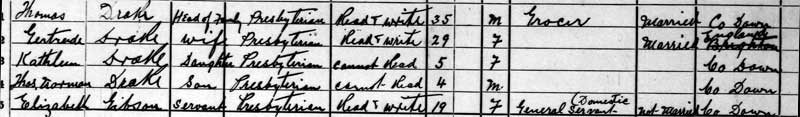 Thomas Drake Head of Family Presbyterian Read & write 35 M Grocer Married Co Down
2 Gertrude Drake wife Presbyterian Read & write 29 F Married England Brighton
3 Kathleen Drake Daughter Presbyterian cannot Read 5 F Co Down
4 Thos. Norman Drake Son Presbyterian cannot Read 4 M. Co Down
5 Elizabeth Gibson Servant Presbyterian Read & write 19 F General (Domestic Servant Not Married Co Down